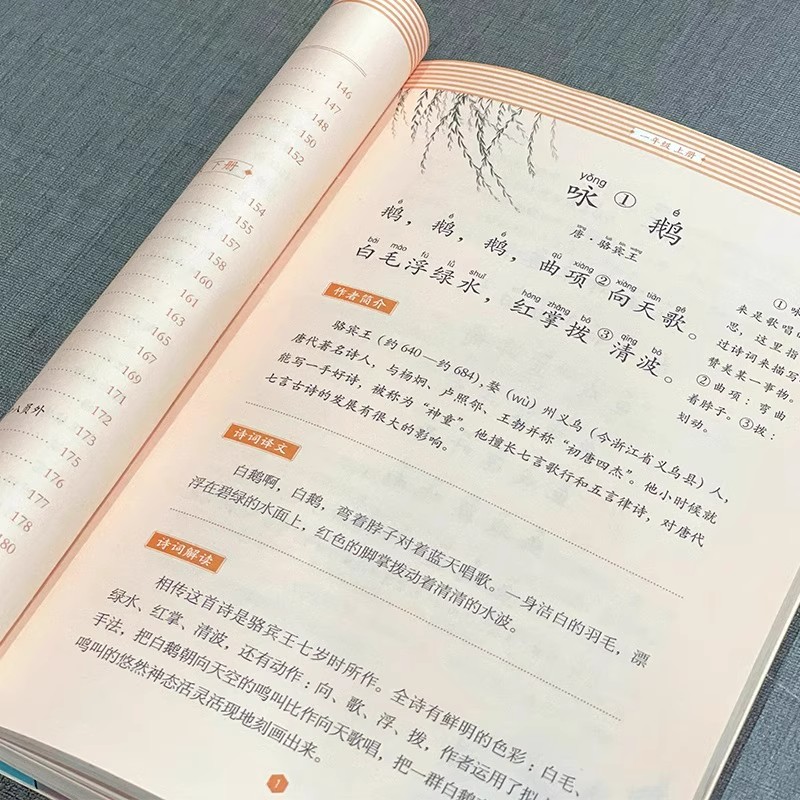 146
147
148
150
152
下册
154
155
157
158
160
161
163
165
167
169
171
172
173
175
176
177
178
180
员外
一年级 上册
yǒng é
咏① 鹅
唐·骆宾王
é é é qū xiàng xiàng tiān gē
鹅，鹅，鹅，曲项②向天歌。
bái máo fú lǜ shuǐ hóng zhǎng bō qīng bō
白毛浮绿水，红掌拨③清波。
①咏
来是歌唱
思，这里指
过诗词来描写
赞美某一事物。
②曲项：弯曲
着脖子。③拨：
划动。
作者简介
骆宾王（约640—约684），婺（wù）州义乌（今浙江省义乌县）人，
唐代著名诗人，与杨炯、卢照邻、王勃并称“初唐四杰”。他小时候就
能写一手好诗，被称为“神童”。他擅长七言歌行和五言律诗，对唐代
七言古诗的发展有很大的影响。
诗词译文
白鹅啊，白鹅，弯着脖子对着蓝天唱歌。一身洁白的羽毛，漂
浮在碧绿的水面上，红色的脚掌拨动着清清的水波。
诗词解读
相传这首诗是骆宾王七岁时所作。全诗有鲜明的色彩：白毛、
绿水、红掌、清波，还有动作：向、歌、浮、拨，作者运用了拟
手法，把白鹅朝向天空的鸣叫比作向天歌唱，把一群白鹅
鸣叫的悠然神态活灵活现地刻画出来。
1